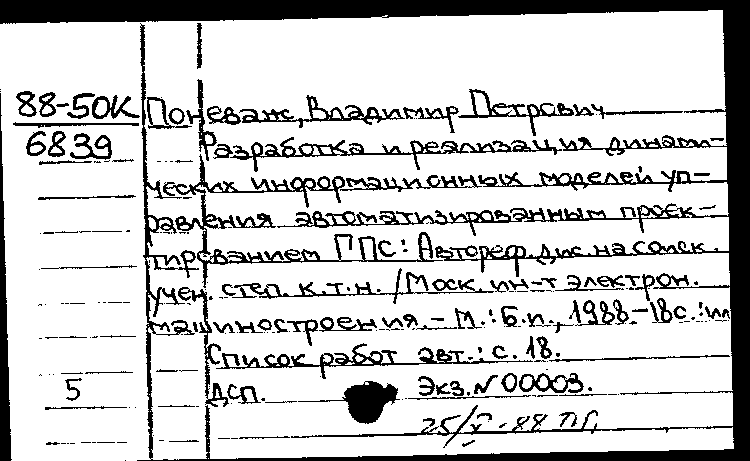 88-50К Поневаж, Владимир Петрович
6839 Разработка и реализация динами-
ческих информационных моделей уп-
равления автоматизированным проек-
тированием ППС: Автореф. дис. на соиск.
учен. степ. к.т.н. / Моск. ин-т электрон.
машиностроения. - М.: Б.и., 1988. - 18с.: ил
Список работ авт.: с. 18.
5 ДСП. Экз. № 00003.
25/V-88